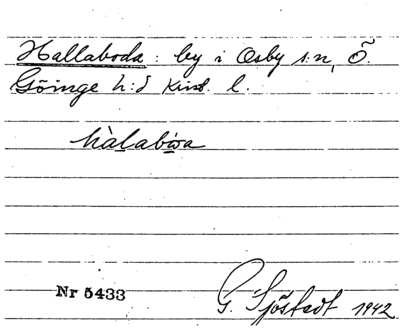 Hallaboda: by i Osby s:n, Ö.
Göinge h:d Krist. l.
hàlabωa
Nr 5433
G. Sjöstedt 1942